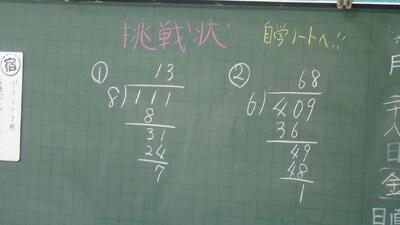 挑戦状
自学ノートへ!!
①
13
8)111
8
31
24
7
②
68
6)409
36
49
48
1
宿
月
日
金
日直